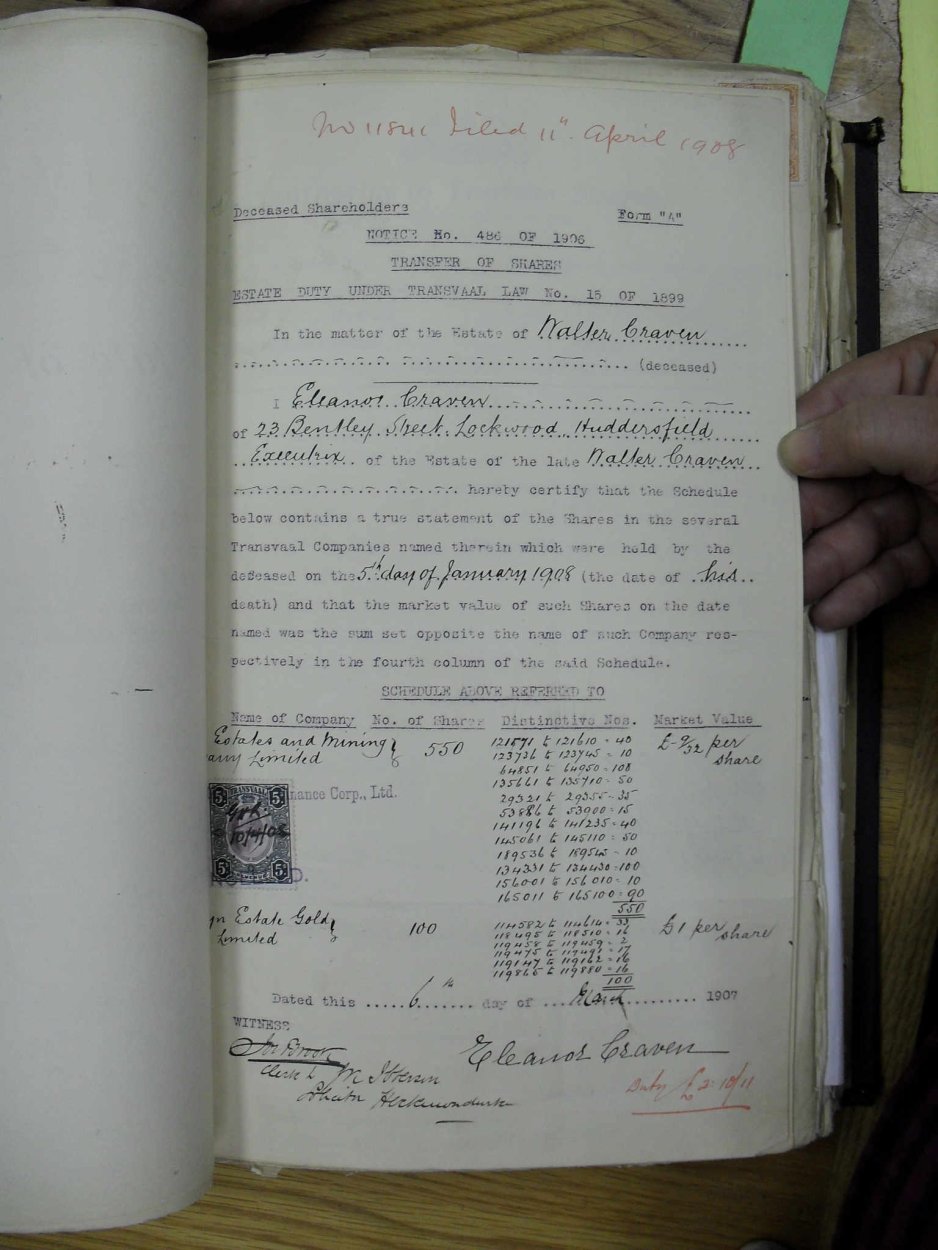 No 11841 Filed 11th April 1908
Deceased Shareholders Form "A"
NOTICE No. 486 OF 1906
TRANSFER OF SHARES
ESTATE DUTY UNDER TRANSVAAL LAW No. 15 OF 1899
In the matter of the Estate of Walter Craven
(deceased)
I Eleanor Craven
of 23 Bentley Street, Lockwood, Huddersfield
Executrix of the Estate of the late Walter Craven
hereby certify that the Schedule
below contains a true statement of the Shares in the several
Transvaal Companies named therein which were held by the
deceased on the 5th day of January 1908 (the date of his
death) and that the market value of such Shares on the date
named was the sum set opposite the name of such Company res-
pectively in the fourth column of the said Schedule.
SCHEDULE ABOVE REFERRED TO
Name of Company No. of Shares Distinctive Nos. Market Value
Estates and Mining 550 121571 to 121610 = 40 £-9/32 per share
any Limited 123736 to 123745 = 10
64851 to 64950 = 100
135661 to 135710 = 50
nance Corp., Ltd.
29321 to 29355 = 35
53886 to 53900 = 15
141196 to 141235 = 40
145061 to 145110 = 50
189536 to 189545 = 10
134331 to 134430 = 100
156001 to 156010 = 10
165011 to 165100 = 90
550
TRANSVAAL
5/ 5/
10/4/08
5/ 5/
Estate Gold 100 114582 to 114614 = 33 £1 per share
Limited 118495 to 118510 = 16
119458 to 119459 = 2
119475 to 119491 = 17
119147 to 119162 = 16
119865 to 119880 = 16
100
Dated this 6th day of March 1907
WITNESS
Jos Brook Eleanor Craven
Clerk to
Solicitor Heckmondwike
Duty £2:10/11